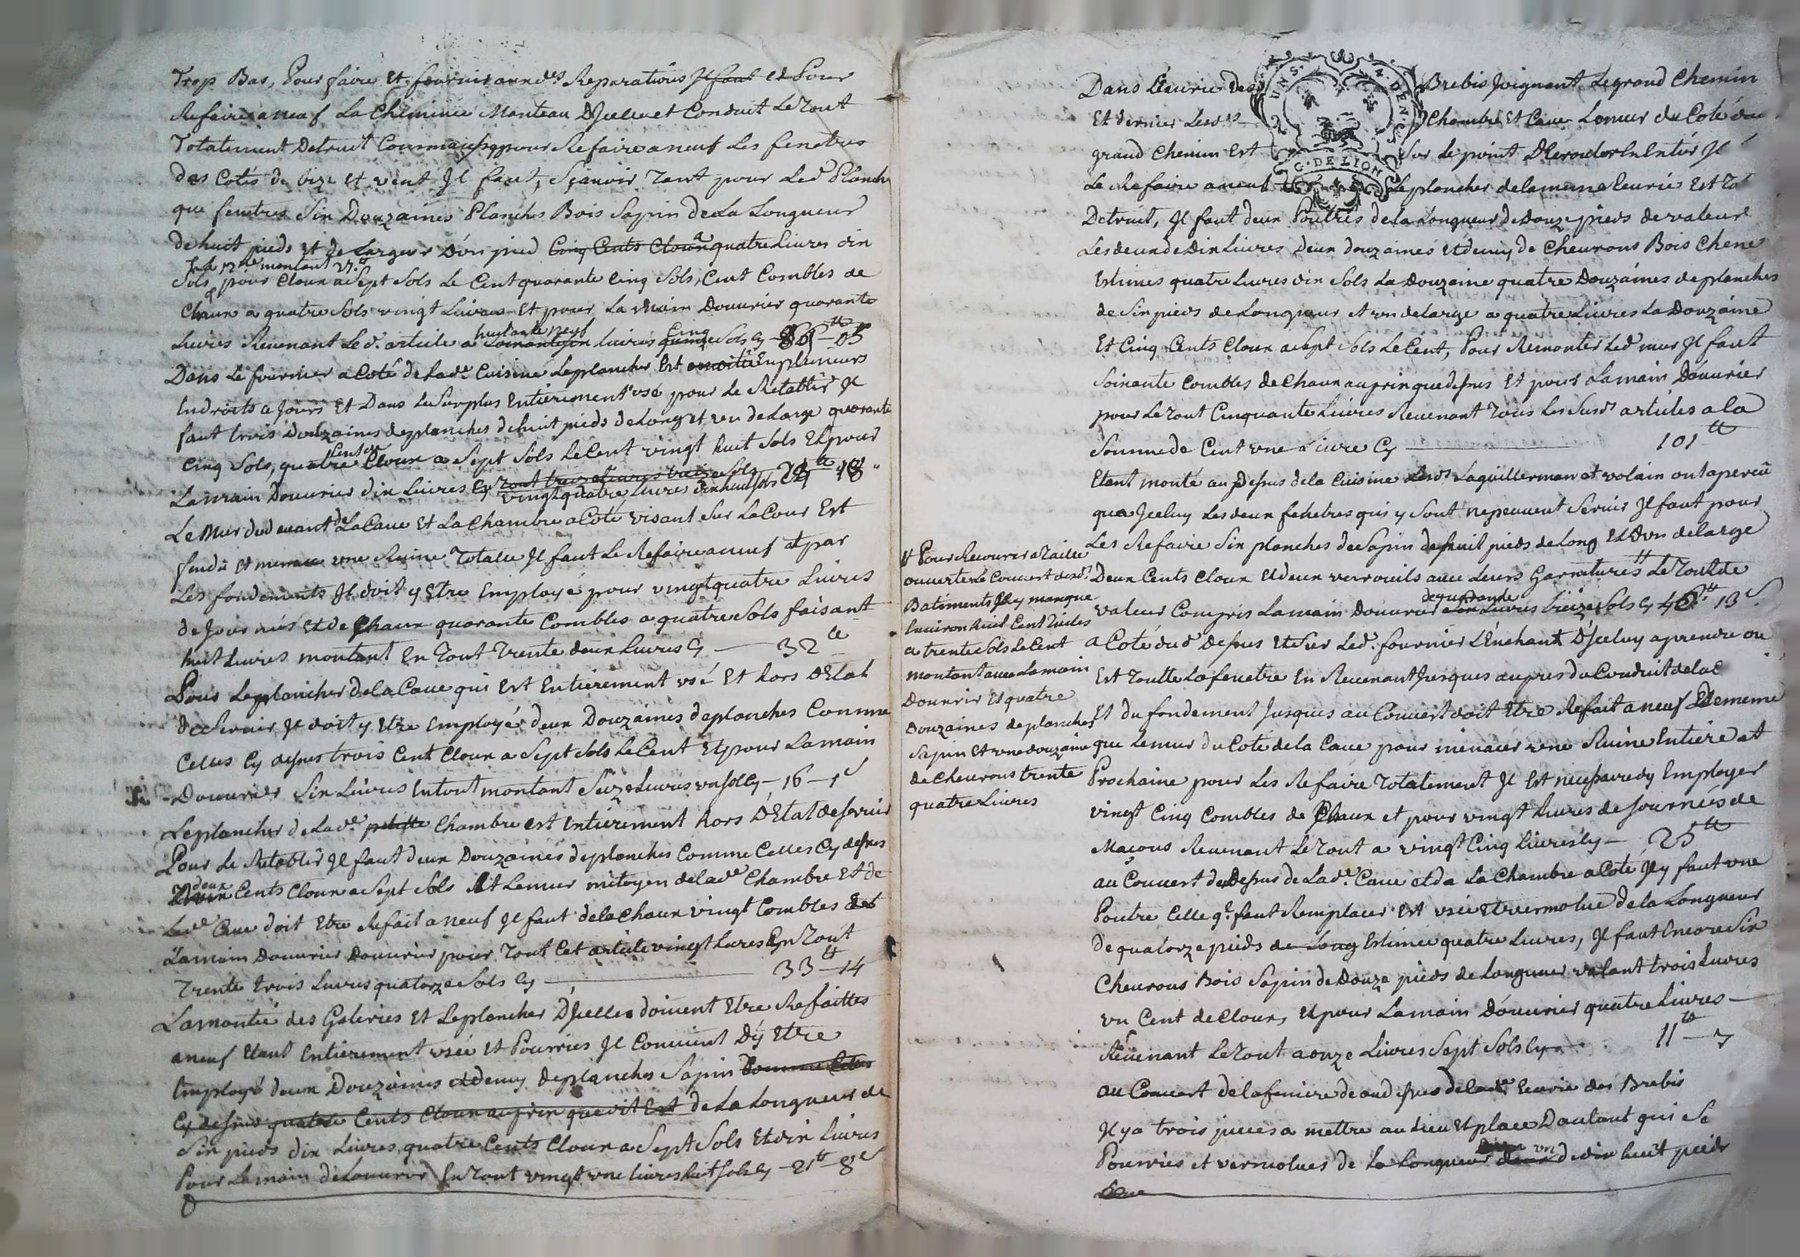 Trop Bas, Pour faire Et fournir auxd.es Reparations Il faut et Pour
Refaire a neuf La Cheminée Manteau D'Jcelle et Conduit Le Tout
Totalement Detruit Comm'aussy pour Refaire a neuf Les fenetres
des Cotés de bize et vent Jl faut, Sçavoir Tant pour Led. Planch
que fenetres Six Douzaines Planches Bois Sapin De La Longueur
de huit pieds et de Largeur D'un pied Cinq Cents Cloux quatre Livres dix
Sols pour Cloux a Sept Sols Le Cent quarante Cinq Sols, Cent Combles de
Chaux a quatre Sols vingt Livres Et pour La main Douvrier quarante
Livres Revenant Le d. article a huitante neuf Livres Cinq Sols Cy 89 tt 05
Dans Le fournier a Coté de Lad.e Cuisine Le plancher Est En plusieurs
Endroits a Jours Et Dans Le Surplus Entierement Usé pour Le Retablir Jl
faut trois Douzaines de planches de huit pieds de Long et un de Large quarante
Cinq Sols, quatre Cents Cloux a Sept Sols Le Cent vingt huit Sols Et pour
La main Douvrier dix Livres Cy vingt quatre Livres dix huit Sols 24 tt 18
Le Mur du devant de La Cave Et La Chambre a Coté visant Sur La Cour Est
fendu Et menace une Ruine Totale Jl faut Le Refaire a neuf et par
Les fondements Jl doit y Etre Employé pour vingt quatre Livres
de Journées Et de Chaux quarante Combles a quatre Sols faisant
huit Livres montant En Tout Trente deux Livres Cy — 32 tt
Pour Le plancher de La Cave qui Est Entierement usé Et hors D'Etat
De Servir Jl doit y Etre Employé deux Douzaines de planches Comme
Celles Cy dessus trois Cent Cloux a Sept Sols Le Cent Et pour La main
Douvrier Six Livres En tout montant Seize Livres un Sol Cy — 16 — 1 s
Le plancher de Lad.e petitte Chambre est Entierement hors D'Etat de Servir
Pour Le Retablir Jl faut deux Douzaines de planches Comme Celles Cy dessus
deux Cents Cloux a Sept Sols Et Le mur mitoyen de Lad.e Chambre Et de
Lad.e Cave doit Etre Refait a neuf Jl faut de La Chaux vingt Combles Et
La main Douvrier Douvrier pour Tout Cet article vingt Livres En Tout
Trente trois Livres quatorze Sols Cy — 33 tt 14
La montée des Galeries Et Le plancher D'Jcelles doivent Etre Refaittes
a neuf Etant Entierement usée et Pourries Jl Convient D'y Etre
Employé deux Douzaines et demy De planches Sapin Comme Celles
Cy dessus quatre Cents Cloux au prix que dit Est de La Longueur de
Six pieds dix Livres, quatre Cents Cloux a Sept Sols Et dix Livres
Pour La main de Louvrier En Tout vingt une Livres huit Sols Cy — 21 tt 8 s
Dans L'Ecurie des Brebis Joignant Le grand Chemin
Et dernier Lesd.
Chambre Et Cave Le mur du Coté du
grand Chemin Est Sur Le point D'Ecrouler En Entier Jl
Le Refaire a neuf Le plancher de La meme Ecurie Est
Detruit, Jl faut deux Poutres de La Longueur de Douze pieds de valeur
Les deux de Dix Livres Deux douzaines et demy de Chevrons Bois Chene
Estimés quatre Livres dix Sols La Douzaine quatre Douzaines de planches
de Six pieds de Longueur et un de Large a quatre Livres La Douzaine
Et Cinq Cents Cloux a Sept Sols Le Cent, Pour Remonter Led. mur Jl faut
Soixante Combles de Chaux au prix que dessus Et pour La main Douvrier
pour Le Tout Cinquante Livres Revenant Tous Les Susd. articles a La
Somme de Cent une Livre Cy — 101 tt
Etant monté au Dessus de La Cuisine Lesd. Laguillermin et volain ont aperçu
qua Jcelle Les deux fenetres qui y Sont ne peuvent Servir Jl faut pour
Les Refaire Six planches de Sapin de huit pieds de Long Et d'un de Large
Deux Cents Cloux Et deux verrouils avec Leurs Garnitures Le Tout de
valeur Compris La main Douvrier de quarante Livres treize Sols Cy 40 tt 13 s
a Coté dud. Dessus Et Sur Led. fournier L'Enchant D'Jceluy a prendre ou
Est Toutte La fenetre En Revenant Jusques aupres du Conduit
Et du fondement Jusques au Couvert doit Etre Refait a neuf Et meme
que Le mur du Coté de La Cave pour menacer une Ruine Entiere et
Prochaine pour Les Refaire Totalement Jl Est necessaire dy Employer
vingt Cinq Combles de Chaux et pour vingt Livres de Journées de
Maçons Revenant Le Tout a vingt Cinq Livres Cy — 25 tt
au Couvert du Dessus de Lad.e Cave et de La Chambre a Coté Jl y faut une
Poutre Celle q.l faut Remplacer Est usée Et vermolue de La Longueur
De quatorze pieds de Long Estimée quatre Livres, Jl faut Encore Six
Chevrons Bois Sapin de Douze pieds de Longueur valant trois Livres
un Cent de Cloux, Et pour La main Douvrier quatre Livres —
Revenant Le Tout a onze Livres Sept Sols Cy — 11 tt — 7
au Couvert de La feniere de au dessus de Lad.e Ecurie des Brebis
Jl y a trois pieces a mettre au Lieu Et place D'autant qui Se
Pourries et vermolues de La Longueur de dix huit pieds
Pour Recouvrir a Taille
ouverte Le Couvert desd.
Batiments Jl y manque
Environ huit Cent Tuiles
a trente Sols Le Cent
montant avec La main
Douvrier Et quatre
Douzaines de planches
Sapin Et une douzaine
de Chevrons trente
quatre Livres
G. DE LION